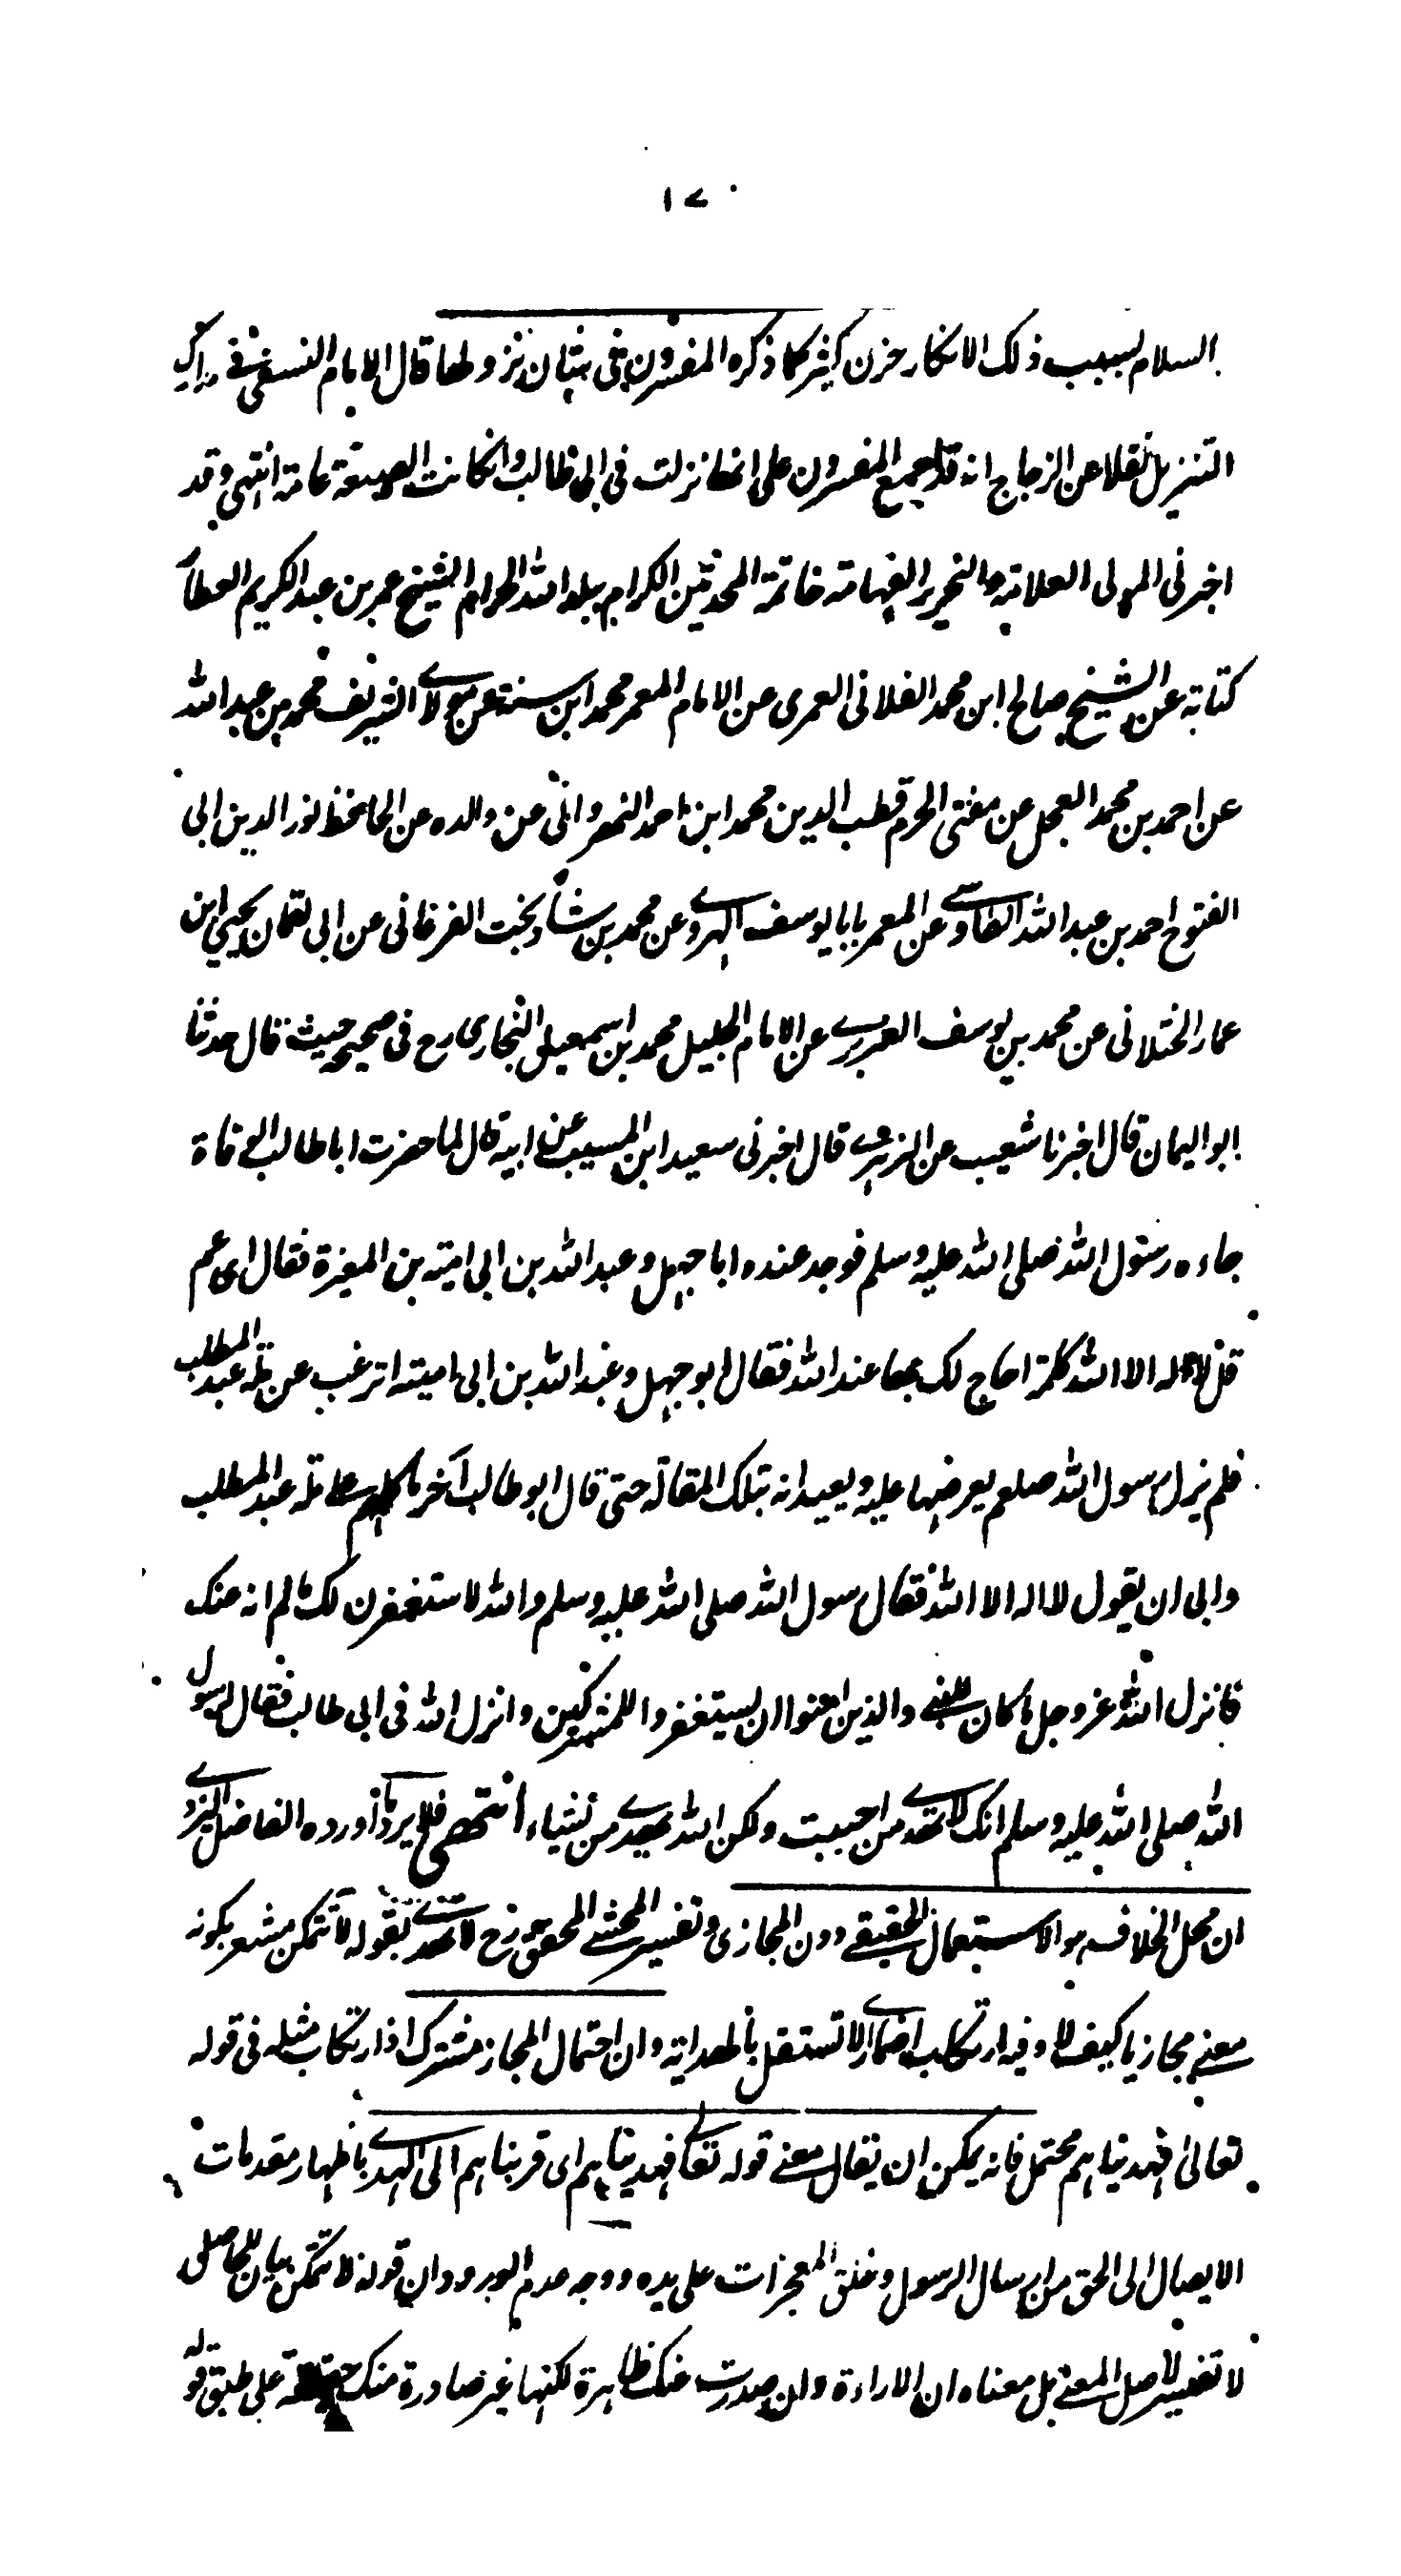 ١٧
السلام بسبب ذلك الانكار حزن كثير كما ذكره المفسرون فى بيان نزولها قال الامام النسفى فى مدارك
التنزيل نقلا عن الزجاج انه قد اجمع المفسرون على انها نزلت فى ابى طالب وانكانت الصيغة عامة انتهى وقد
اخبرنى المولى العلامة والنحرير الفهامة خاتمة المحدثين الكرام ببلد الله الحرام الشيخ عمر بن عبد الكريم العطار
كتابة عن الشيخ صالح ابن محمد الفلانى العمرى عن الامام المعمر محمد ابن سنة عن مولاے الشريف محمد بن عبد الله
عن احمد بن محمد العجل عن مفتى الحرم قطب الدين محمد ابن احمد النهروانى عن والده عن الحافظ نور الدين ابى
الفتوح احمد بن عبد الله الطاوسے عن المعمر بابا يوسف الهروے عن محمد بن شاد بخت الفرغانى عن ابى لقمان يحيى ابن
عمار الختلانى عن محمد بن يوسف الفربرے عن الامام الجليل محمد ابن اسمعيل البخارى رح فى صحيحه حيث قال حدثنا
ابو اليمان قال اخبرنا شعيب عن الزهرے قال اخبرنى سعيد ابن المسيب عن ابيه قال لما حضرت ابا طالب الوفاة
جاءه رسول الله صلى الله عليه وسلم فوجد عنده ابا جهل وعبد الله بن ابى امية بن المغيرة فقال اى عم
قل لا اله الا الله كلمة احاج لك بها عند الله فقال ابو جهل وعبد الله بن ابى امية اترغب عن ملة عبد المطلب
فلم يزل رسول الله صلعم يعرضها عليه ويعيدانه بتلك المقالة حتى قال ابو طالب آخر ما كلمهم على ملة عبد المطلب
وابى ان يقول لا اله الا الله فقال رسول الله صلى الله عليه وسلم والله لاستغفرن لك ما لم انه عنك
فانزل الله عز وجل ما كان للنبے والذين امنوا ان يستغفروا للمشركين وانزل الله فى ابى طالب فقال لرسول
الله صلى الله عليه وسلم انك لا تهدے من احببت ولكن الله يهدے من يشاء انتهى فلا يرد ما أورده الفاضل اليزدے
ان محل الخلاف هو الاستعمال الحقيقے دون المجازى وتفسير المحشے المحقق رح لا تهدے بقوله لا تتمكن مشعر بكونه
معنے مجازيا كيف لا وفيه ارتكاب اضمار اے لا تستقل بالهداية وان احتمال المجاز مشترك اذ ارتكاب مثله فى قوله
تعالى فهديناهم محتمل فانه يمكن ان يقال معنے قوله تعالے فهديناهم اى قربناهم الى الهدے باظهار مقدمات
الايصال الى الحق من ارسال الرسول وخلق المعجزات على يده ووجه عدم الورود ان قوله لا تتمكن بيان للحاصل
لا تفسير لاصل المعنے بل معناه ان الاراءة وان صدرت عنك ظاهرة لكنها غير صادرة منك حقيقة على طبق قوله